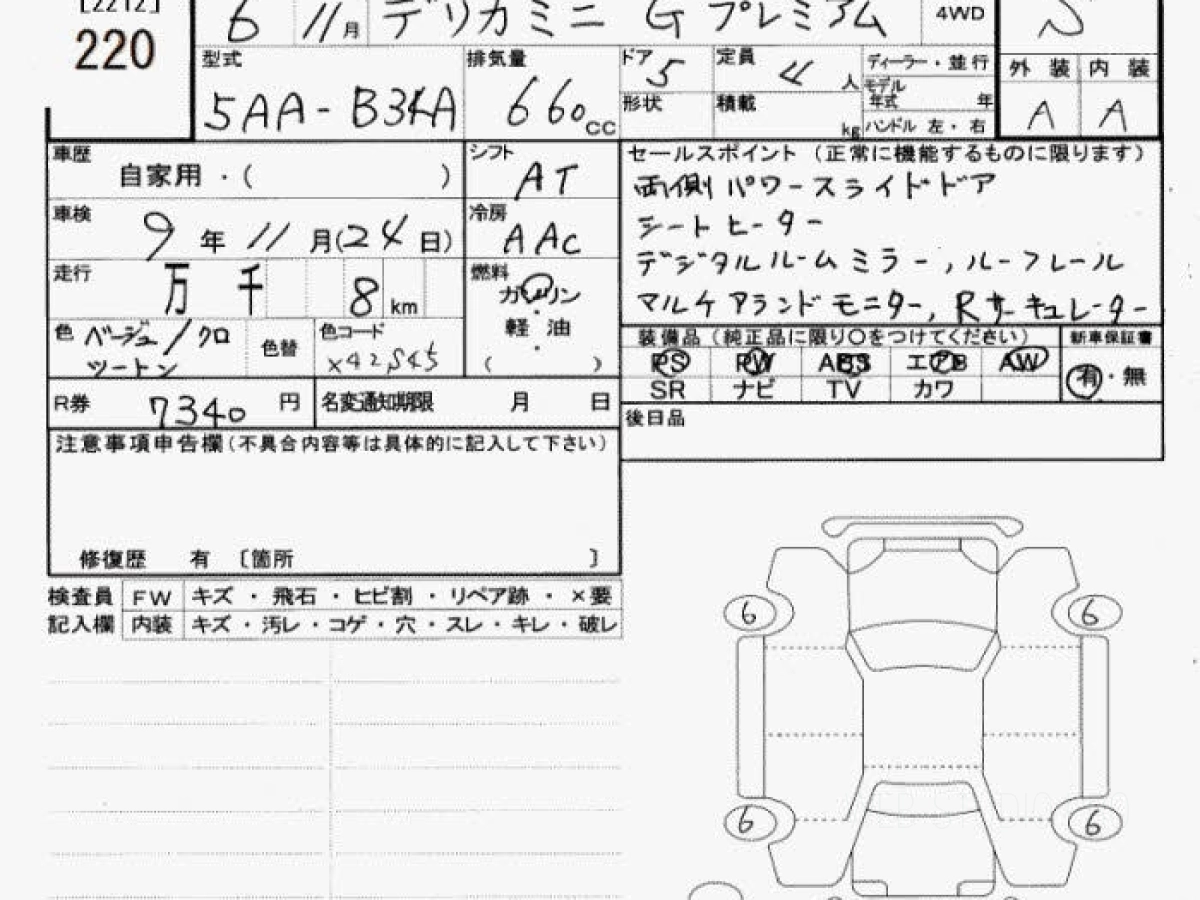 [2212]
220
6 11月 デリカミニ G プレミアム 4WD
S
型式 5AA-B38A
排気量 660cc
ドア 5
定員 4人
ディーラー・並行
モデル年式 年
形状
積載 kg
ハンドル 左・右
外装 内装
A A
車歴 自家用・( )
シフト AT
車検 9年11月(24日)
冷房 AAC
走行 万 千 8 km
燃料 ガソリン・軽油・( )
色 ベージュ/クロ ツートン
色替
色コード X42S45
セールスポイント(正常に機能するものに限ります)
両側パワースライドドア
シートヒーター
デジタルルームミラー,ルーフレール
マルチアラウンドモニター,Rサーキュレーター
装備品(純正品に限り〇をつけてください)
PS PW ABS エアB AW
SR ナビ TV カワ
新車保証書
有・無
R券 7340円
名変通知期限 月 日
後日品
注意事項申告欄(不具合内容等は具体的に記入して下さい)
修復歴 有 〔箇所 〕
検査員 FW キズ・飛石・ヒビ割・リペア跡・×要
記入欄 内装 キズ・汚レ・コゲ・穴・スレ・キレ・破レ
6 6
6 6